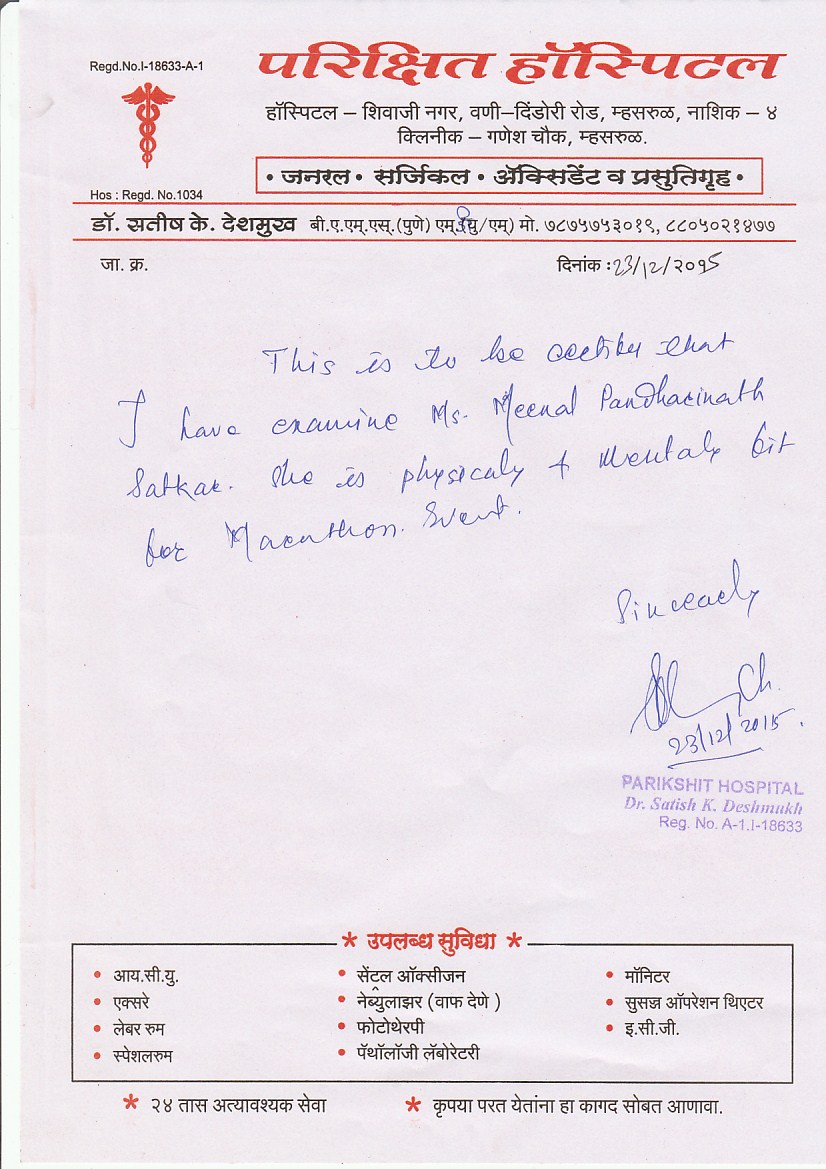 Regd.No.I-18633-A-1
परिक्षित हॉस्पिटल
हॉस्पिटल – शिवाजी नगर, वणी–दिंडोरी रोड, म्हसरुळ, नाशिक – ४
क्लिनीक – गणेश चौक, म्हसरुळ.
• जनरल • सर्जिकल • ॲक्सिडेंट व प्रसुतिगृह •
Hos : Regd. No.1034
डॉ. सतीष के. देशमुख बी.ए.एम्.एस्.(पुणे) मो. ७८७५७५३०१९, ८८०५०२१४७७
जा. क्र.
दिनांक : 23/12/२०१5
This is to be certify that
I have examine Ms. Meenal Pandharinath
Satkar. She is physicaly & Mentaly fit
for Marathon. Event.
Sincearly
23/12/2015.
PARIKSHIT HOSPITAL
Dr. Satish K. Deshmukh
Reg. No. A-1.I-18633
* उपलब्ध सुविधा *
• आय.सी.यु.
• एक्सरे
• लेबर रुम
• स्पेशलरुम
• सेंटल ऑक्सीजन
• नेब्युलाझर (वाफ देणे )
• फोटोथेरपी
• पॅथॉलॉजी लॅबोरेटरी
• मॉनिटर
• सुसज्ज ऑपरेशन थिएटर
• इ.सी.जी.
* २४ तास अत्यावश्यक सेवा
* कृपया परत येतांना हा कागद सोबत आणावा.